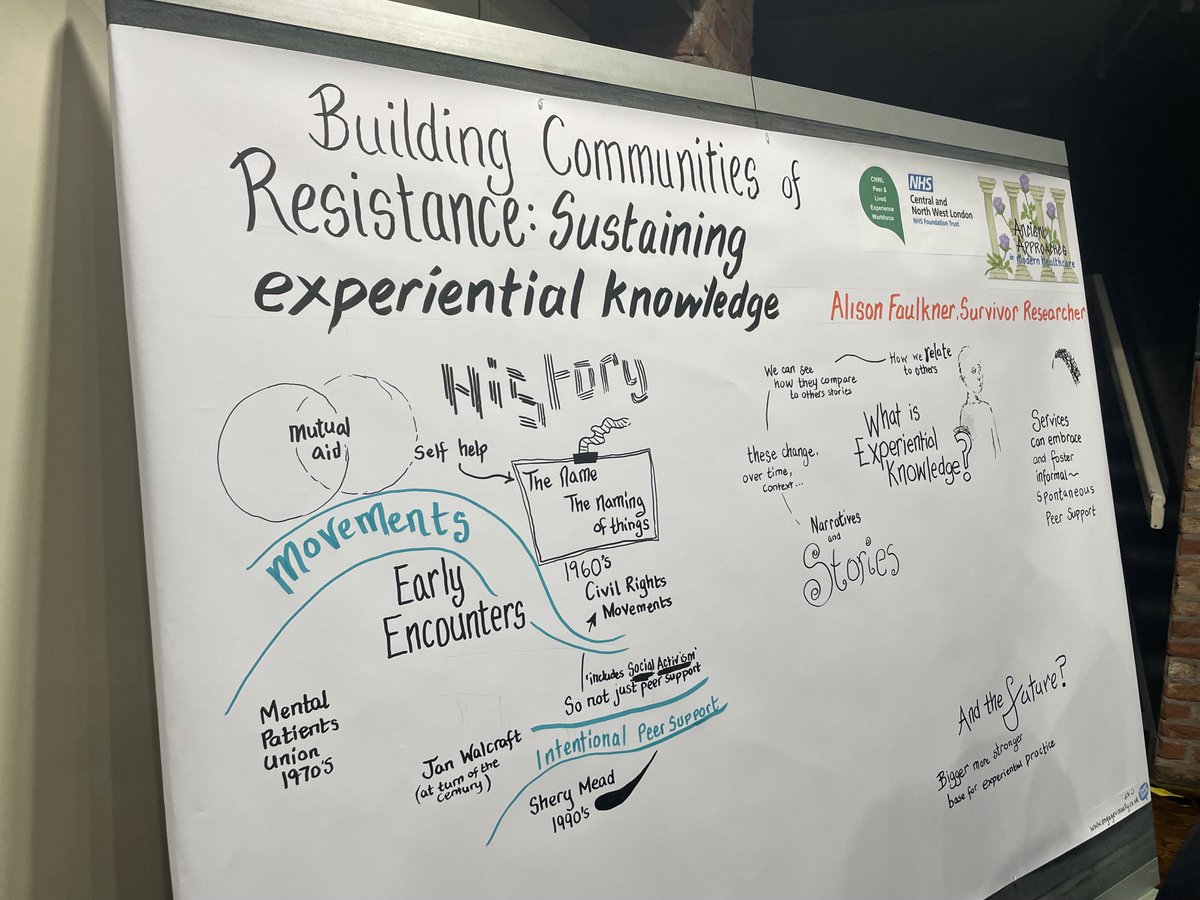 Building Communities of
Resistance: Sustaining
experiential knowledge
CNWL
Peer &
Lived
Experience
Workforce
NHS
Central and
North West London
NHS Foundation Trust
Ancient
Approaches
in Modern Healthcare
Alison Faulkner, Survivor Researcher
History
mutual
aid
Self help
The Name
The naming
of things
Movements
Early
Encounters
1960's
Civil Rights
Movements
'includes Social Activism'
So not just peer support
Intentional Peer Support
Mental
Patients
Union
1970's
Jan Walcraft
(at turn of the
century)
Shery Mead
1990's
We can see
how they compare
to others stories
How we relate
to others
What is
Experiential
Knowledge?
these change.
over time,
context...
Narratives
and
Stories
Services
can embrace
and foster
informal~
spontaneous
Peer Support
And the future?
Bigger more stronger
base for experiential practice
www.engagevisually.co.uk